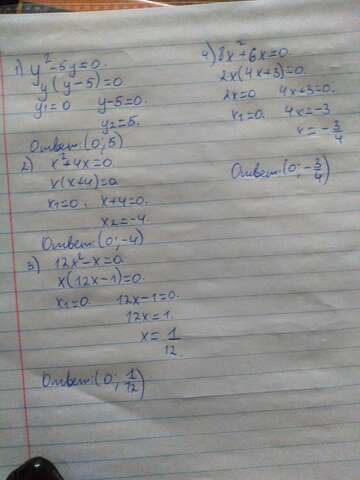 1) y²-5y=0.
y(y-5)=0.
y₁=0 y-5=0.
y₂=5.
Ответ:(0;5)
2) x²+4x=0.
x(x+4)=0
x₁=0, x+4=0.
x₂=-4
Ответ:(0;-4)
3) 12x²-x=0
x(12x-1)=0.
x₁=0. 12x-1=0.
12x=1.
x=1/12.
Ответ:(0; 1/12)
4) 8x²+6x=0.
2x(4x+3)=0.
2x=0 4x+3=0.
x₁=0. 4x=-3
x=-3/4
Ответ:(0;-3/4)